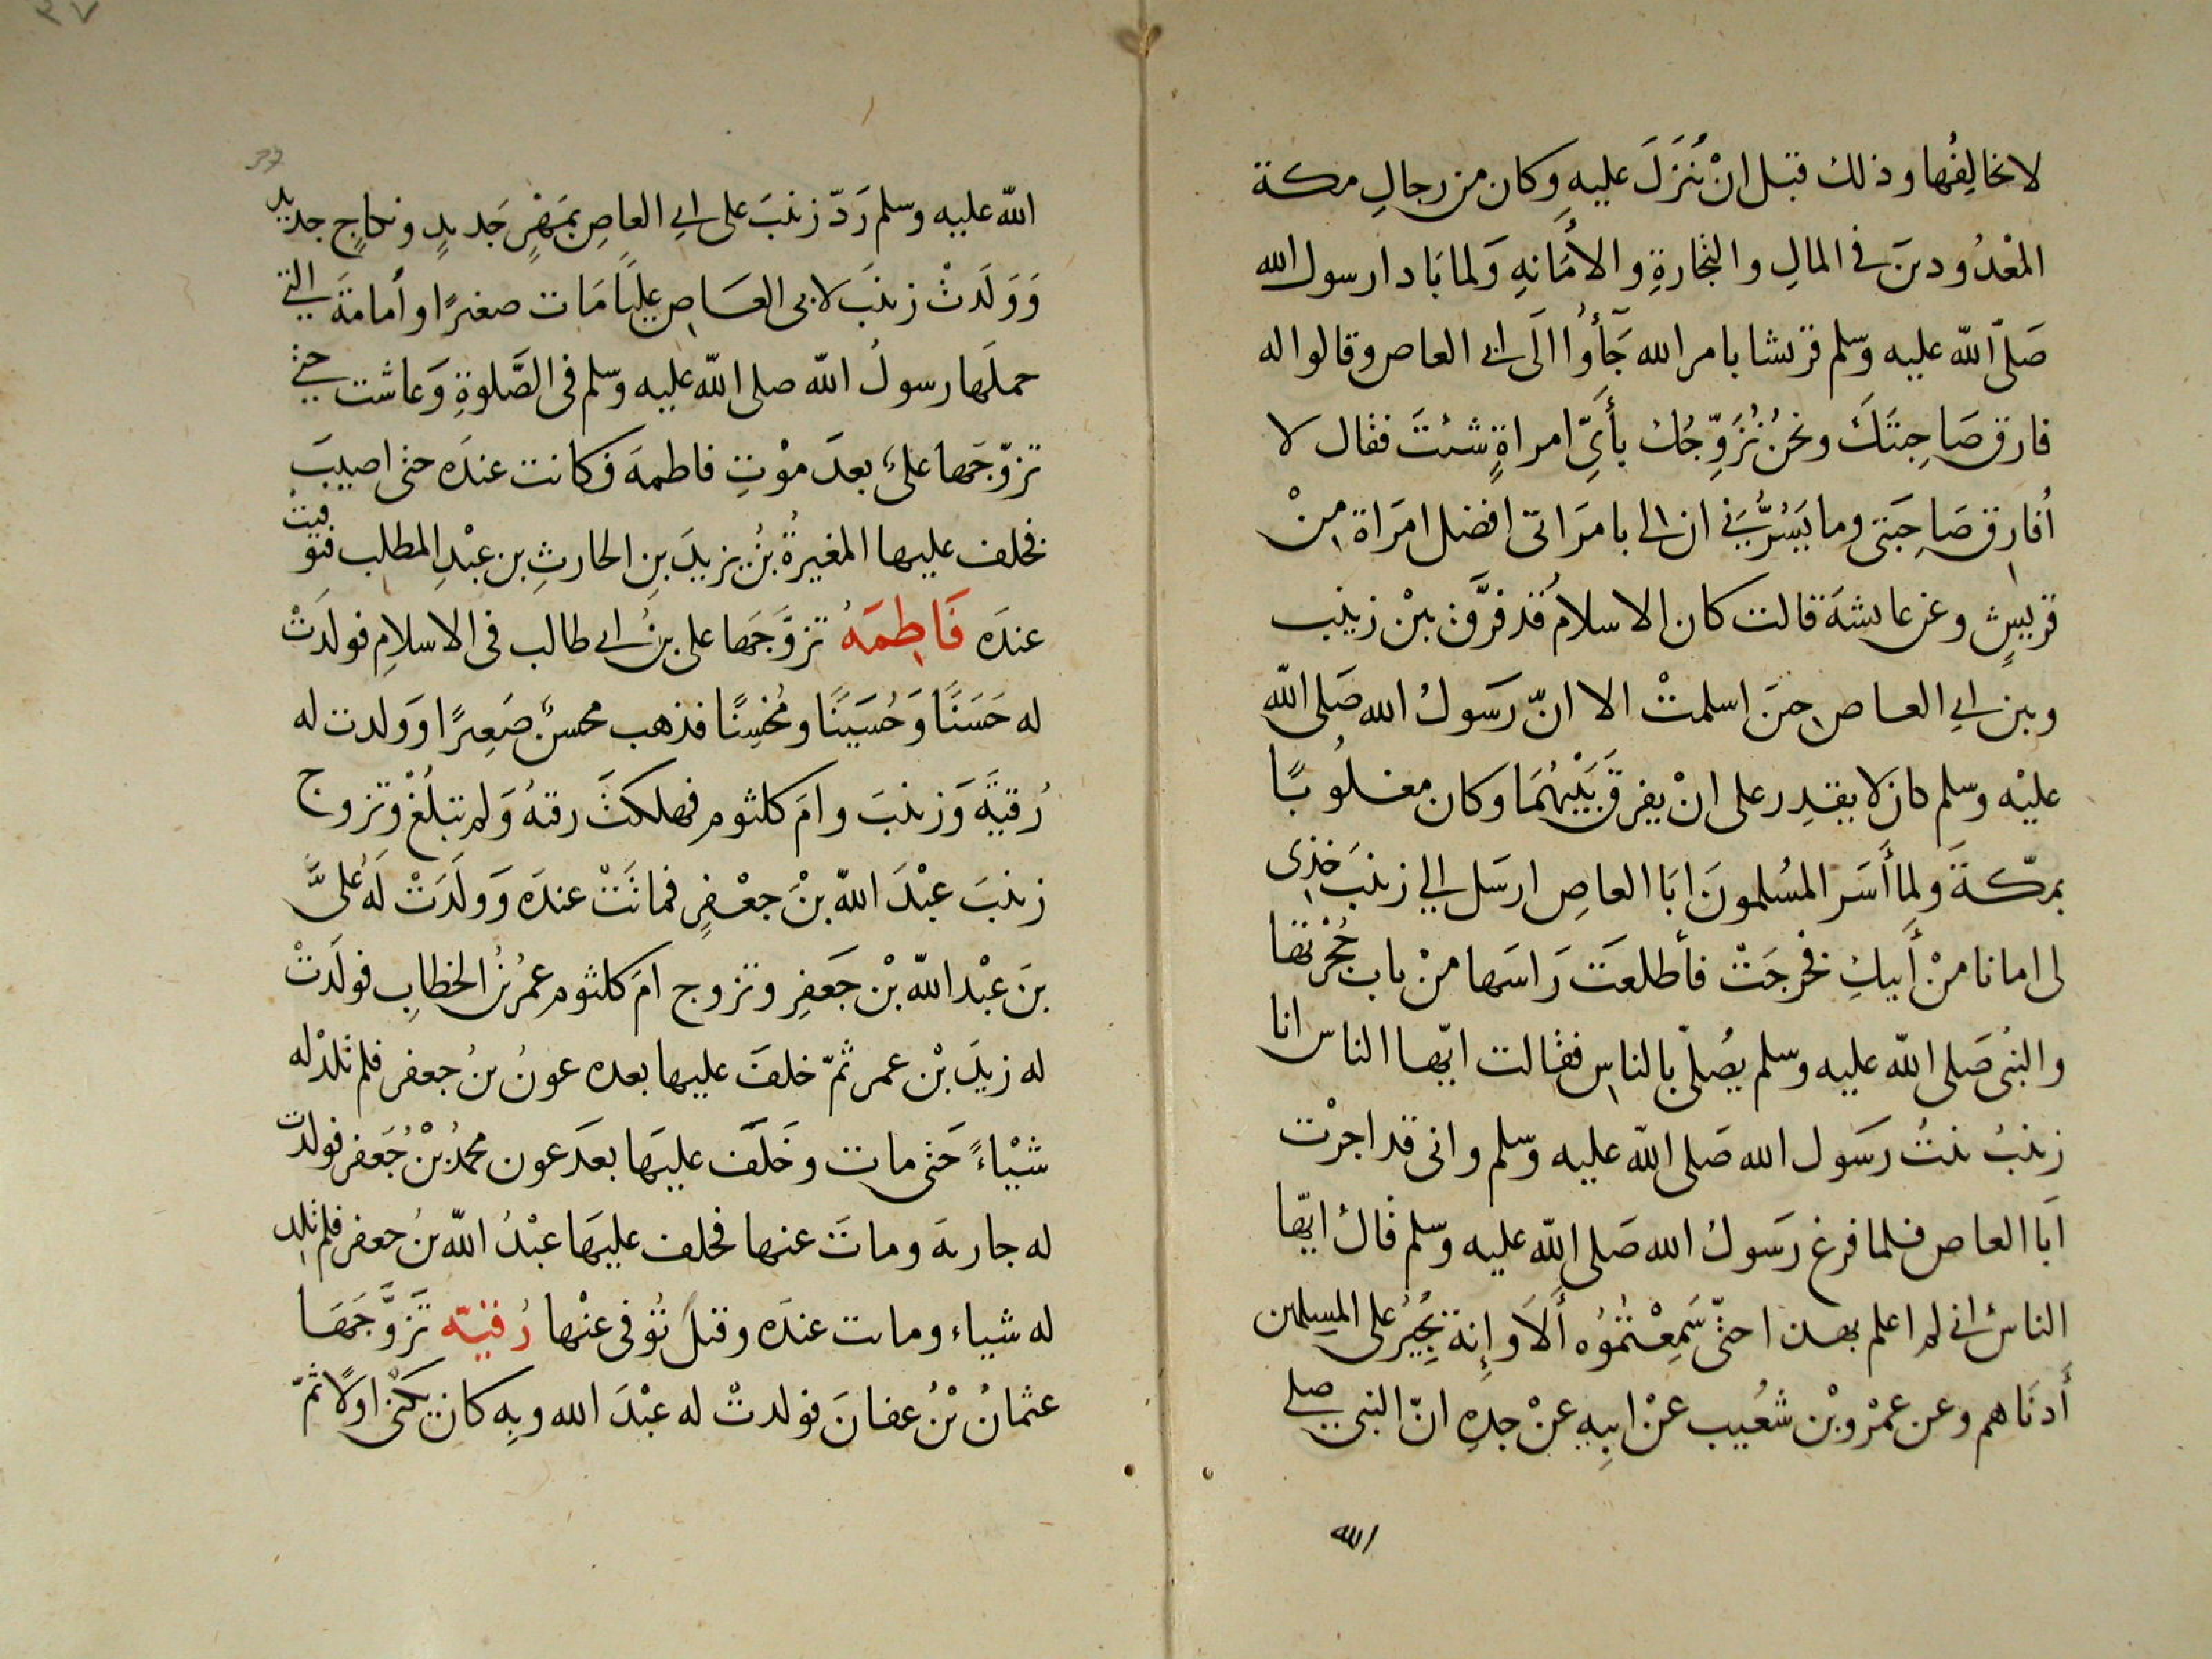 لا نخالفُها وذلك قبل انْ يُنزَلَ عليهِ وكان من رجالِ مكة
المعْدُودينَ في المالِ والتجارةِ والأمَانةِ وَلما بَادا رسول الله
صَلى الله عليه وسلم قريشا بامر الله جَآؤُا الَى ابي العاص وقالوا له
فارق صَاحِبتَكَ ونحنُ نُزَوِّجُك بأَىِّ امراةٍ شئتَ فقال لا
اُفارق صَاحِبَتي وما يَسُرُّني ان لي بامرَاتى افضل امرَاة مِنْ
قريشٍ وعن عايشةَ قالت كان الاسلامُ قد فرَّق بيْن زينب
وبين ابي العاص حينَ اسلمتْ الا انّ رَسَولُ الله صَلى الله
عليْه وسلم كان لا يقدِر على انْ يفرقَ بَيْنهُمَا وكان مغلُوبًا
بمكّةَ ولما أَسَر المسُلمونَ ابَا العاصِ ارسَل الي زينبَ خذى
لى امانا منْ أَبيكِ فخرجَتْ فأطلعَت رَاسَها منْ باب حُجْرتها
والنبُى صَلى الله عليه وسلم يصُلّي بالناسِ فقالت ايّها الناس انا
زينبُ بنتُ رسَول الله صَلى الله عليه وسلم وانى قد اجرْت
ابَا العاص فلما فرغ رَسَولُ الله صَلى الله عليه وسلم قالُ ايّها
الناسُ اني لم اعلم بهذا حتّى سَمِعْتُموُه أَلاَ وإِنه يُجِيرُ على المسلمين
أَدنَاهم وعن عمْرو بْن شعُيب عنْ ابيهِ عنْ جدهِ انّ النبى صلى
الله
٣٧
37
الله عليه وسلم رَدّ زينبَ على ابي العاصِ بمَهْرٍ جَديدٍ ونكاحٍ جديد
وَوَلَدتْ زينبَ لابى العَاصِ عليًا مَات صغيرًا وأمامةَ التي
حملَها رسولُ الله صلى الله عليه وسلم فى الصَّلوةِ وَعاشت حتي
تزوّجَها علىٌ بعدَ موْتِ فاطمةَ فكانت عندَه حتى اصيبَ
فخلف عليها المغيرةُ بنُ يزيدَ بنِ الحارثِ بن عبْدِ المطلب فتوفيت
عندَه فَاطِمَةُ تزوَّجَها على بنُ ابي طالب فى الاسلامِ فولدَتْ
له حَسَنًا وَحُسَينًا ومُحْسِنًا فذهب محسنٌ صَغِيرًا وَولدت له
رُقيةَ وَزينبَ وامَ كلثوم فهلكتْ رقيةُ وَلم تبلُغْ وتزوج
زينبَ عبْدَ اللهِ بنْ جعْفرٍ فماتَتْ عندَه وَولَدَتْ لَهُ عليَّ
بنَ عبْد الله بْن جَعفرِ وتزوج امَ كلثوم عمُر بنُ الخطابِ فولدَتْ
له زيدَ بْن عمر ثمّ خلفَ عليها بعده عونُ بنُ جعفر فلم تلدْ له
شيْاءً حَتى مات وخَلَفَ عليهَا بعدَ عون محمدُ بْنُ جَعفر فولدت
له جاريةَ وماتَ عنها فخلف عليهَا عبْدُ الله بنُ جعفر فلم تلد
له شياء وماتت عندَه وقيلَ توُفى عنْها رُقيّة تَزَوَّجَهَا
عثمانُ بْنُ عفانَ فولدتْ له عبْدَ الله وبِه كان يكنى اولًا ثمّ